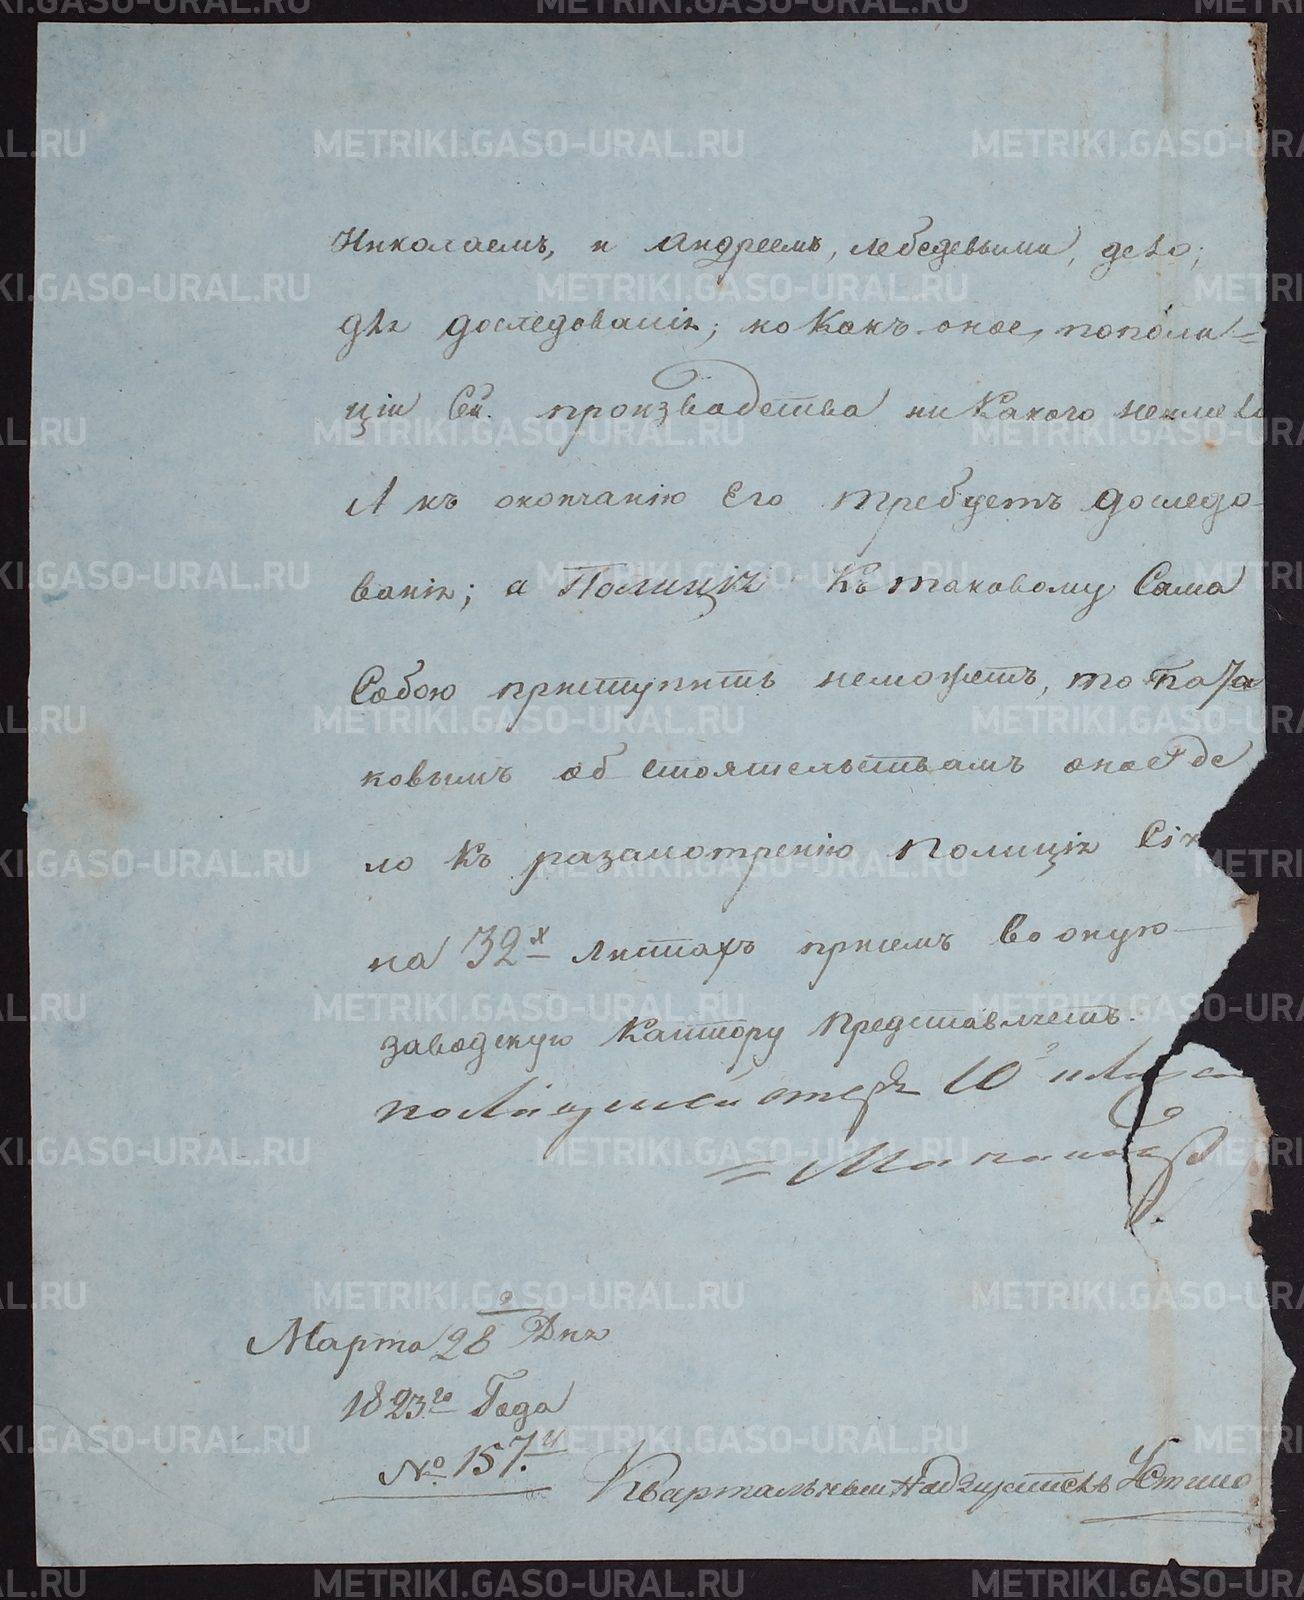 Николаемъ, и Андреемъ, лебедевыми, дело;
для доследованія; но Какъ оное, пополи=
ціи Сей. произвадства ни Какого неимело
А къ окончанію Его требуетъ доследо-
ванія; а Полиція Къ таковому Сама
Собою приступить неможетъ, то пота
ковымъ об стоятельствамъ оное де
ло Къ разсмотренію Полиція Сія
на 32х листахъ приемъ во оную
заводскую Кантору Представляетъ.
полицмейстеръ 10го класса
Марта 28го Дня
1823го Года
№ 157.й
Квартальный Надзиратель Устино
METRIKI.GASO-URAL.RU